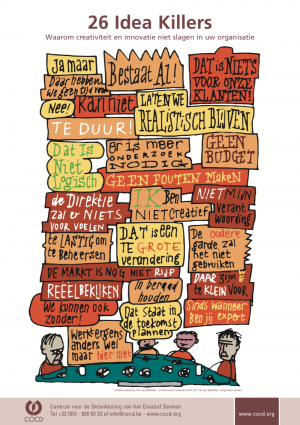 26 Idea Killers
Waarom creativiteit en innovatie niet slagen in uw organisatie
ja maar
Daar hebben
we geen tijd voor
Nee!
Bestaat Al!
DAT is NIETS
VOOR ONZE
KLANTEN!
Kan niet
LATEN WE
REALISTISCH BLIJVEN
TE DUUR!
Dat Is
Niet
logisch
er is meer
ONDERZOEK
NODIG
GEEN
BUDGET
GEEN FOUTEN MAKEN
de Direktie
zal er NIETS
VOOR VOELEN
IK Ben
NIET Creatief
NIET MIJN
Verant
woording
te LASTIG om
te Beheersen
DAT is EEN
TE GROTE
verandering
De oudere
garde zal
het niet
gebruiken
DE MARKT IS NOG NIET RIJP
DAAR ZIJN WE
te KLEIN VOOR
REËEL BEKIJKEN
In beraad
houden
We kunnen ook
zonder!
Dat staat in
de toekomst
planning
Sinds wanneer
Ben jij expert
Werkt ergens
anders wel
maar hier niet
COCD
Centrum voor de Ontwikkeling van het Creatief Denken
www.cocd.org